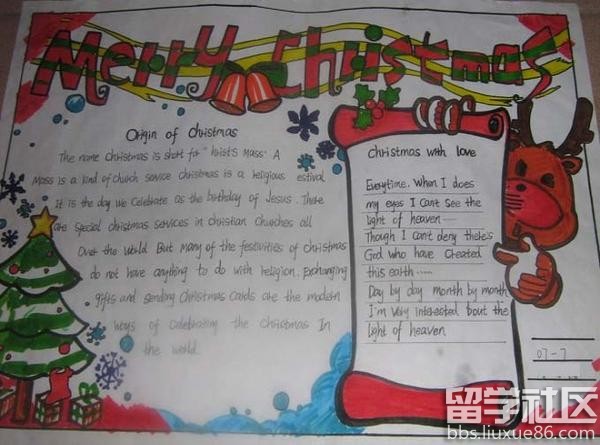 Merry Christmas
Origin of Christmas
The name Christmas is short for "hrist's Mass". A
Mass is a kind of church service christmas is a religious estival
It is the day we celebrate as the birthday of Jesus. There
are special christmas services in christian churches all
Over the World But many of the festivities of christmas
do not have anything to do with religion. Exchanging
gifts and sending Christmas cards are the modern
ways of celebrating the christmas In
the world.
christmas with love
Everytime. When I does
my eyes I can't see the
light of heaven......
Though I can't deny there's
God who have created
this earth......
Day by day month by month
I'm very interested bout the
light of heaven
07-7
留学社区
bbs.liuxue86.com